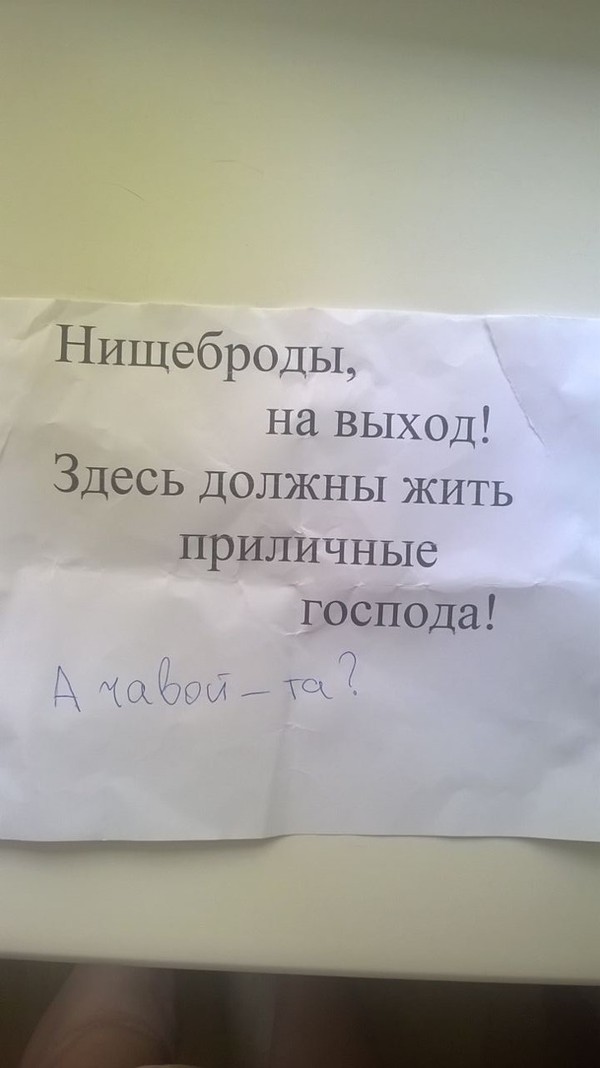 Нищеброды,
на выход!
Здесь должны жить
приличные
господа!
А чавой-та?